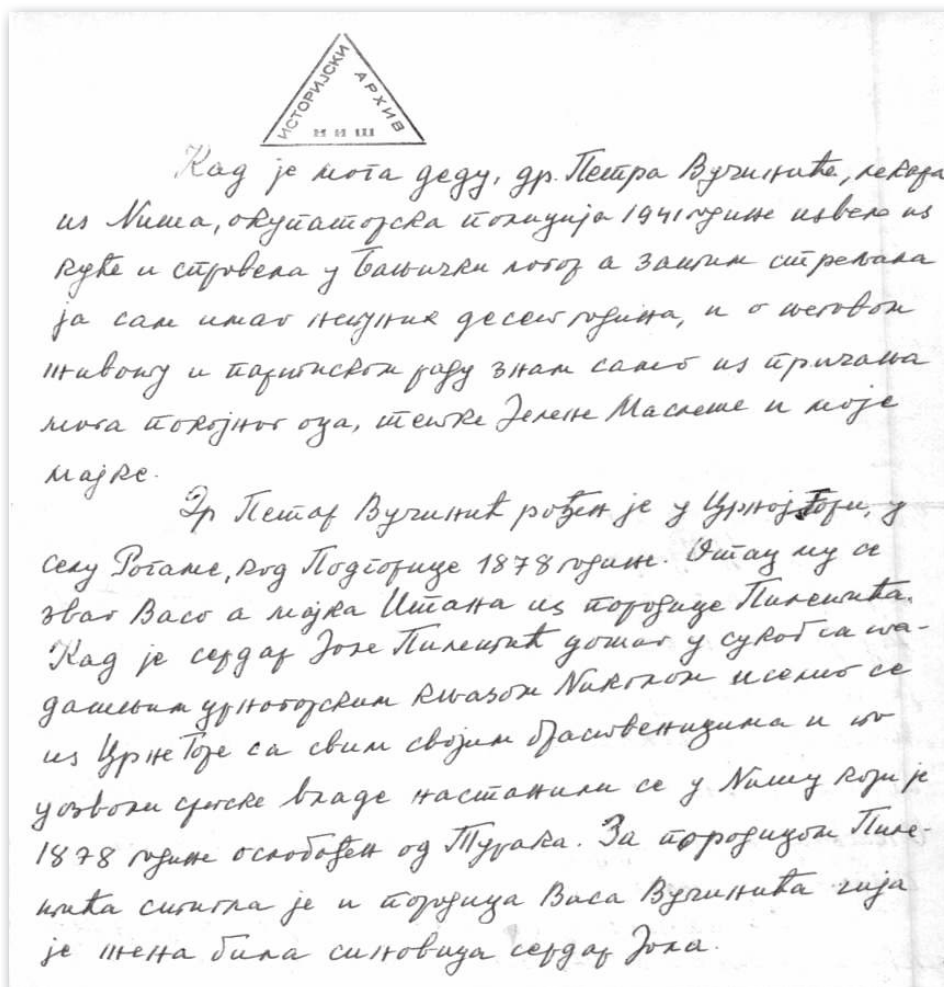 ИСТОРИЈСКИ АРХИВ
НИШ
Кад је мога деду, др. Петра Вучинића, лекара
из Ниша, окупаторска полиција 1941 године извела из
куће и спровела у Бањички логор а затим стрељала
ја сам имао непуних десет година, и о његовом
животу и партиском раду знам само из причања
мога покојног оца, тетке Јелене Маслеше и моје
мајке.
Др Петар Вучинић рођен је у Црној Гори, у
селу Рогаме, код Подгорице 1878 године. Отац му се
звао Васо а мајка Штана из породице Пилетића.
Кад је сердар Јоле Пилетић дошао у сукоб са та-
дашњим црногорским књазом Николом иселио се
из Црне Горе са свим својим братственицима и по
дозволи српске владе настанили се у Нишу који је
1878 године ослобођен од Турака. За породицом Пиле-
тића стигла је и породица Васа Вучинића чија
је жена била синовица сердар Јола.